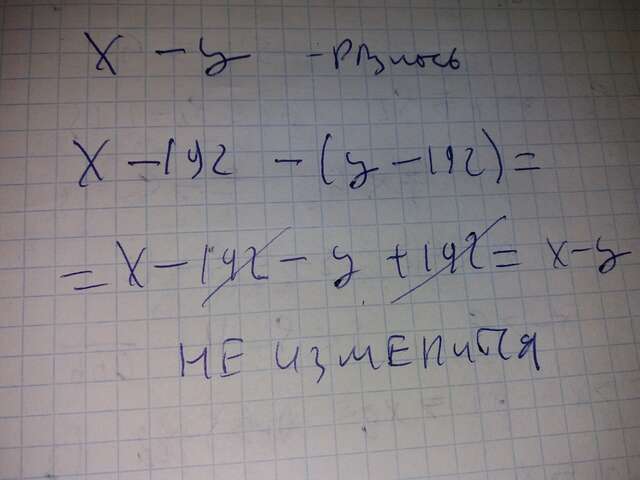 x - y - рзность
x - 192 - (y - 192) =
= x - 192 - y + 192 = x - y
НЕ ИЗМЕНИТСЯ